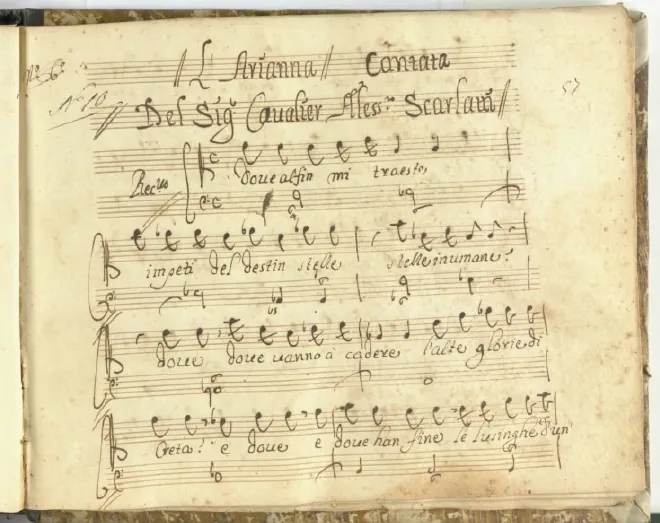 N.º 6
L'Arianna Cantata
Nº 10
Del Sigr Caualier Alessro Scarlatti
57
Recuo
doue alfin mi traeste
impeti del destin stelle stelle inumane?
doue doue uanno à cadere l'alte glorie di
Creta? e doue e doue han fine le lusinghe d'un